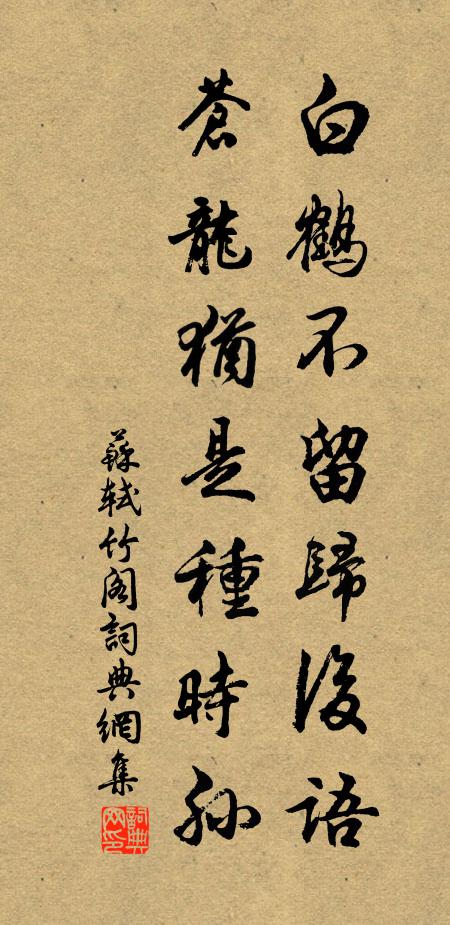 白鶴不留歸後語
蒼龍猶是種時孫
蘇軾竹閣詞典網集
詞典網印